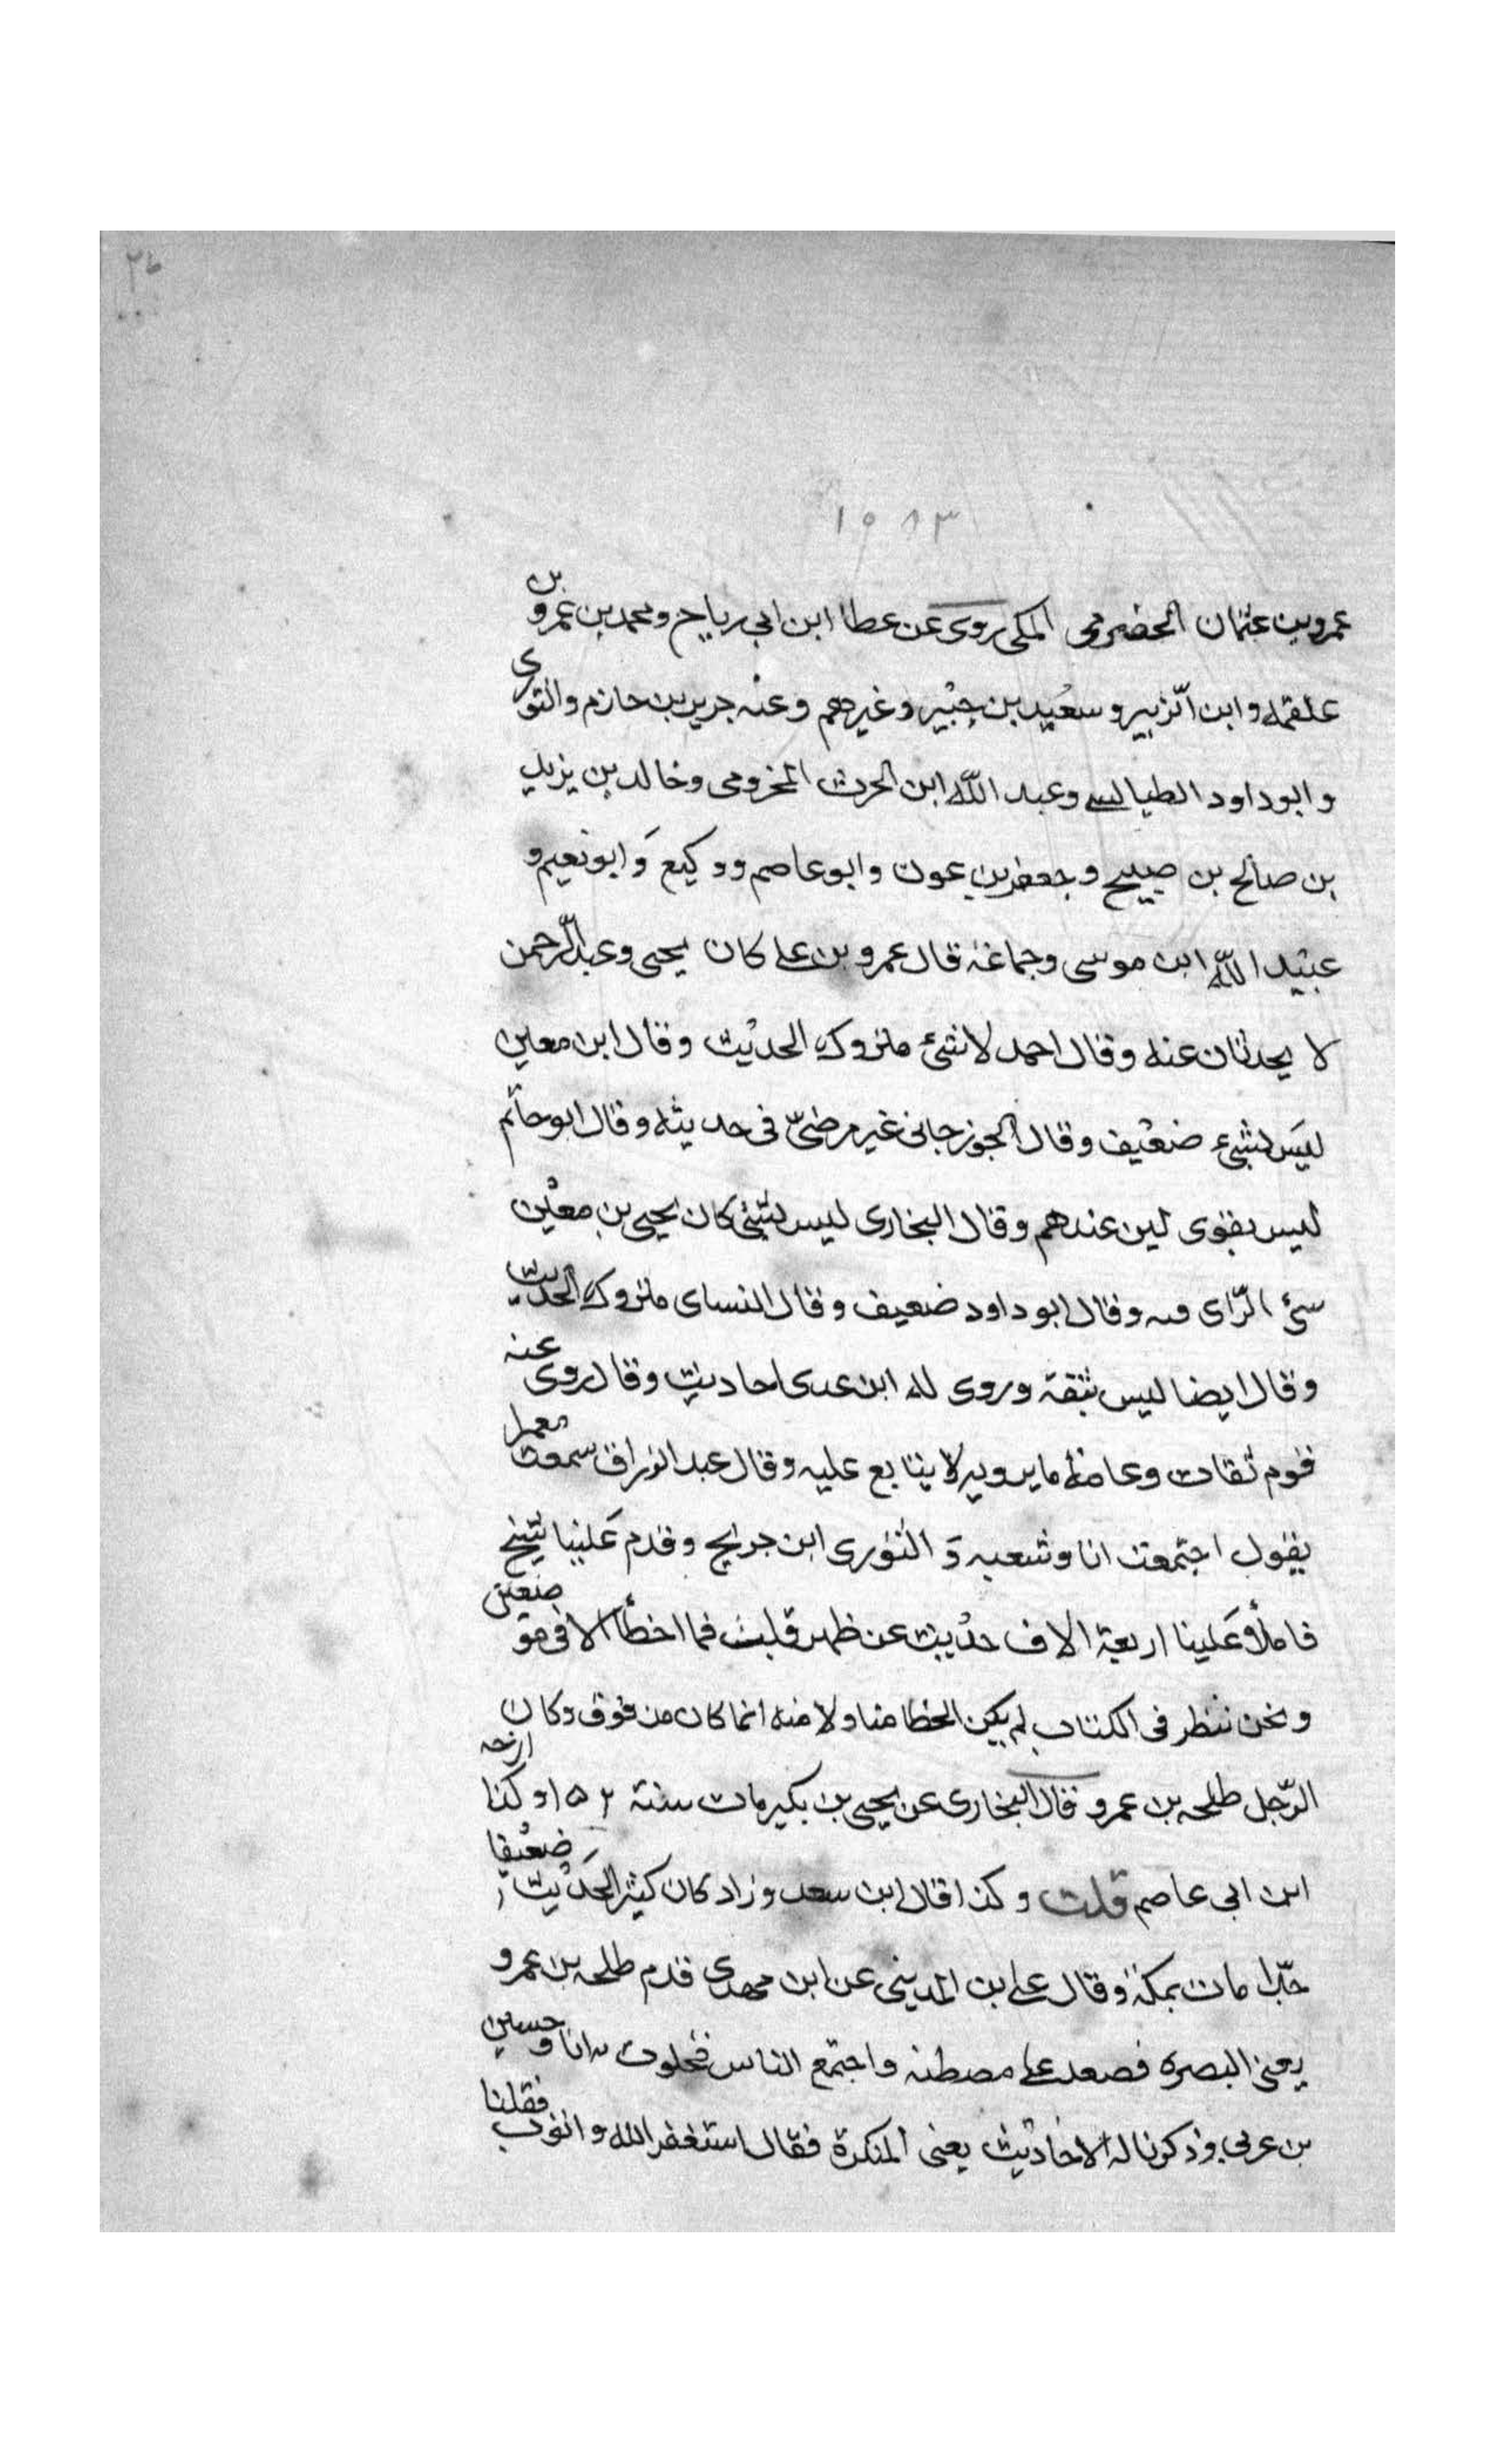 ١٥٨٣
عمرو بن عثمان الحضرمى المكى روى عن عطا ابن ابى رباح ومحمد بن عمرو بن
علقمه وابن الزبير وسعيد بن جبير وغيرهم وعنه جرير بن حازم والثورى
وابو داود الطيالسى وعبد الله ابن الحرث المخزومى وخالد بن يزيد
بن صالح بن صبيح وجعفر بن عون وابو عاصم ووكيع وابو نعيم و
عبيد الله ابن موسى وجماعة قال عمرو بن على كان يحيى وعبد الرحمن
لا يحدثان عنه وقال احمد لا شئ متروك الحديث وقال ابن معين
ليس بشئ ضعيف وقال الجوزجانى غير مرضىّ فى حديثه وقال ابو حاتم
ليس بقوى لين عندهم وقال البخارى ليس بشئ كان يحيى بن معين
سئ الرّاى فيه وقال ابو داود ضعيف وقال النساى متروك الحديث
وقال ايضا ليس بثقة وروى له ابن عدى احاديث وقال روى عنه
قوم ثقات وعامة ما يرويه لا يتابع عليه وقال عبد الرزاق سمعت معمر
يقول اجتمعت انا وشعبه وَ الثورى ابن جريج وقدم عَلينا شيخ
فاملأ عَلينا اربعة الاف حديث عن ظهر قلب فما اخطأ الا فى موضعين
ونحن ننظر فى الكتاب لم يكن الخطا منا ولا منه انما كان من فوق وكان
الرّجل طلحه بن عمرو قال البخارى عن يحيى بن بكير مات سنة ١٥٢ وكذا ارخه
ابن ابى عاصم قلت وكذا قال ابن سعد وزاد كان كثير الحَديث ضعيفا
جّدا مات بمكة وقال على بن المدينى عن ابن مهدى قدم طلحه بن عمرو
يعنى البصره فصعد على مصطبه واجتمع الناس فخلوت به انا وحسين
بن عربى وذكرنا له الاحاديث يعنى المنكرة فقال استغفر الله واتوب فقلنا